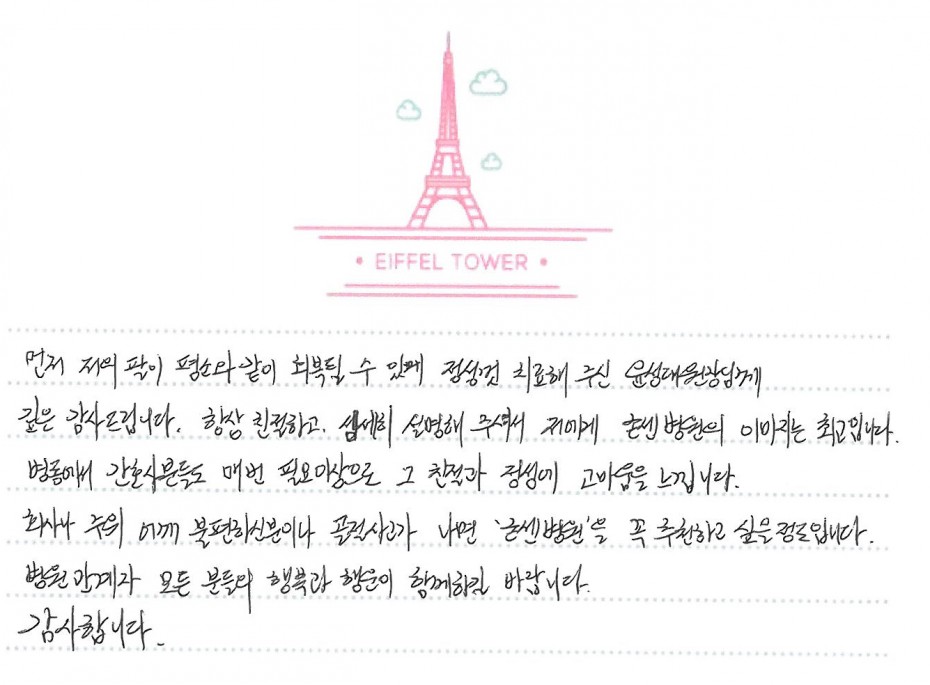 • EIFFEL TOWER •
먼저 저의 팔이 평소와 같이 회복될 수 있게 정성껏 치료해 주신 윤성대원장님께
깊은 감사드립니다. 항상 친절하고, 섬세히 설명해 주셔서 저에게 본센병원의 이미지는 최고입니다.
병동에서 간호사분들도 매번 필요이상으로 그 친절과 정성에 고마움을 느낍니다.
회사나 주위 어깨 불편하신분이나 골절사고가 나면 '본센병원'을 꼭 추천하고 싶을정도입니다.
병원관계자 모든 분들의 행복과 행운이 함께하길 바랍니다.
감사합니다.